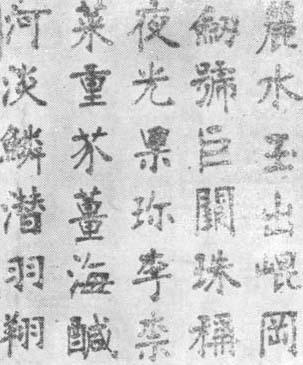 麗水玉出崐岡
劒號巨闕珠稱
夜光果珎李柰
菜重芥薑海鹹
河淡鱗潜羽翔